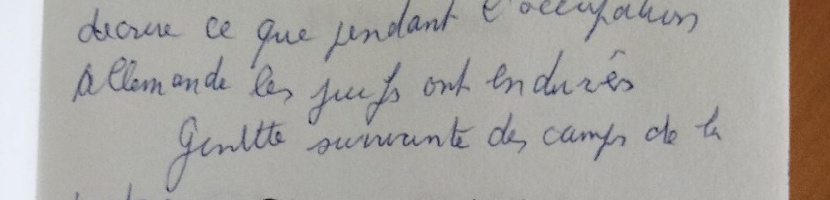 decrire ce que pendant l'occupation
Allemande les juifs ont endurés
survivante des camps de la